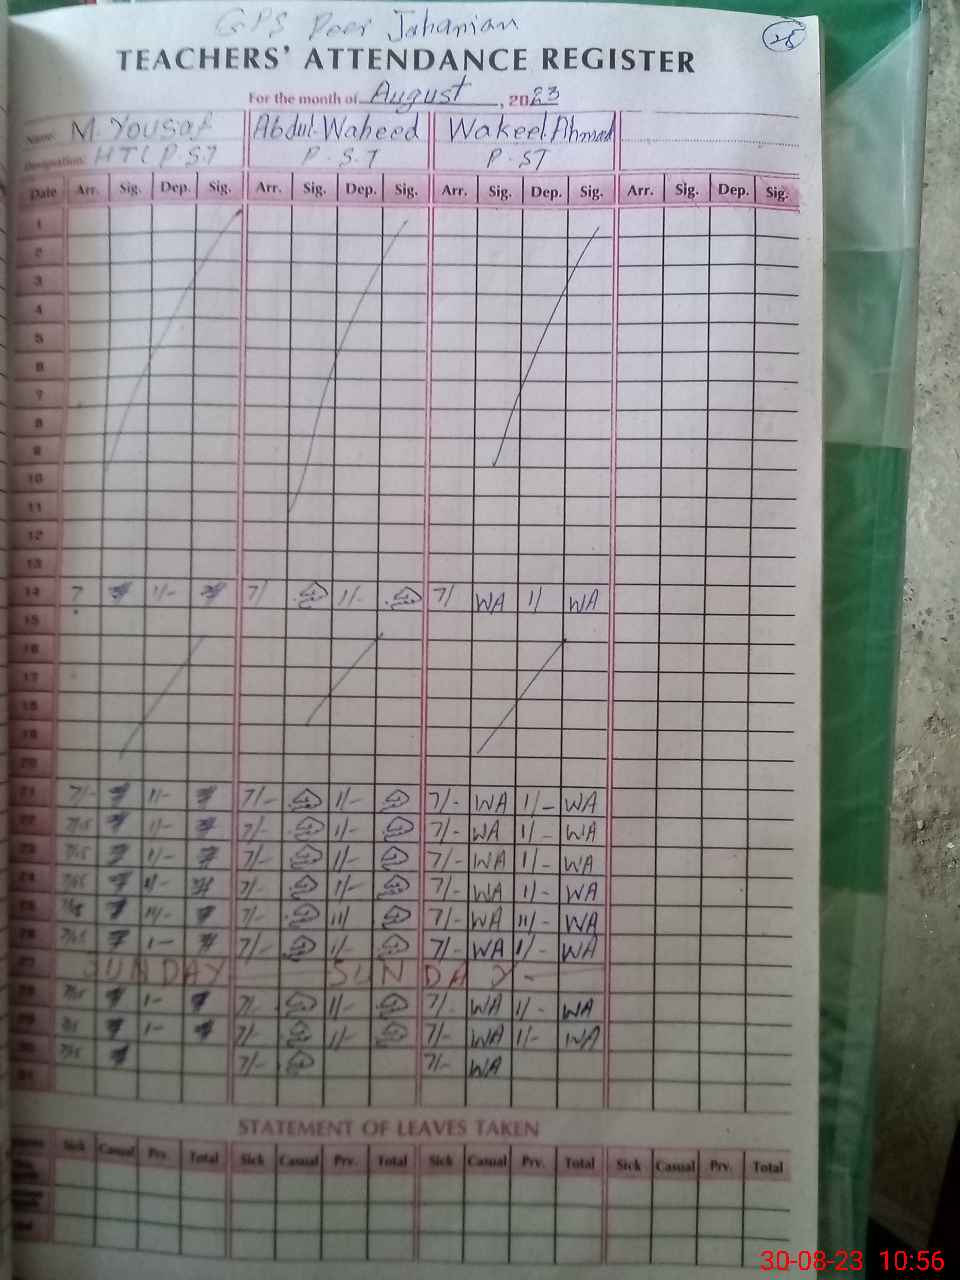 GPS Peer Jahanian
28
TEACHERS' ATTENDANCE REGISTER
For the month of August, 2023
Name: M. Yousaf Abdul Waheed Wakeel Ahmad
Designation: P.S.T P.S.T P.ST
Date Arr. Sig. Dep. Sig. Arr. Sig. Dep. Sig. Arr. Sig. Dep. Sig. Arr. Sig. Dep. Sig.
1
2
3
4
5
6
7
8
9
10
11
12
13
14 7 1/- 7/ 1/- 7/ WA 1/ WA
15
16
17
18
19
20
21 7/- 1/- 7/- 1/- 7/- WA 1/- WA
22 7/15 1/- 7/- 1/- 7/- WA 1/- WA
23 7/15 1/- 7/- 1/- 7/- WA 1/- WA
24 7/15 1/- 7/- 1/- 7/- WA 1/- WA
25 11/- 7/- 11/ 7/- WA 11/- WA
26 7/15 1- 7/- 1/- 7/- WA 1/- WA
27 SUNDAY SUNDAY -
28 7/15 1- 7/- 1/- 7/- WA 1/- WA
29 1- 7/- 1/- 7/- WA 1/- WA
30 7/15 7/- 7/- WA
31
STATEMENT OF LEAVES TAKEN
Sick Casual Prv. Total Sick Casual Prv. Total Sick Casual Prv. Total Sick Casual Prv. Total
30-08-23 10:56